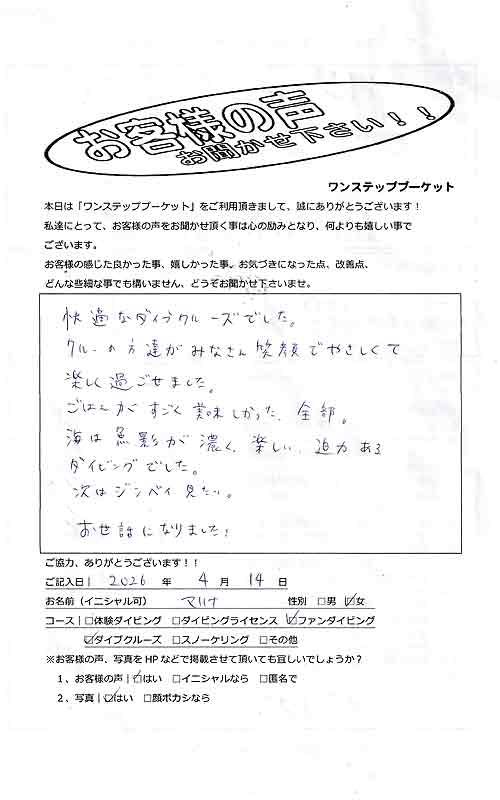 お客様の声
お聞かせ下さい！！
ワンステッププーケット
本日は「ワンステッププーケット」をご利用頂きまして、誠にありがとうございます！
私達にとって、お客様の声をお聞かせ頂く事は心の励みとなり、何よりも嬉しい事で
ございます。
お客様の感じた良かった事、嬉しかった事。お気づきになった点、改善点、
どんな些細な事でも構いません、どうぞお聞かせ下さいませ。
快適なダイブクルーズでした。
クルーの方達がみなさん笑顔でやさしくて
楽しく過ごせました。
ごはんがすごく美味しかった、全部。
海は魚影が濃く、楽しい、迫力ある
ダイビングでした。
次はジンベイ見たい。
お世話になりました!
ご協力、ありがとうございます！！
ご記入日| 2026 年 4 月 14 日
お名前（イニシャル可） マリナ 性別 □男 ☑女
コース| □体験ダイビング □ダイビングライセンス ☑ファンダイビング
☑ダイブクルーズ □スノーケリング □その他
※お客様の声、写真をHPなどで掲載させて頂いても宜しいでしょうか？
１、お客様の声| ☑はい □イニシャルなら □匿名で
２、写真| ☑はい □顔ボカシなら